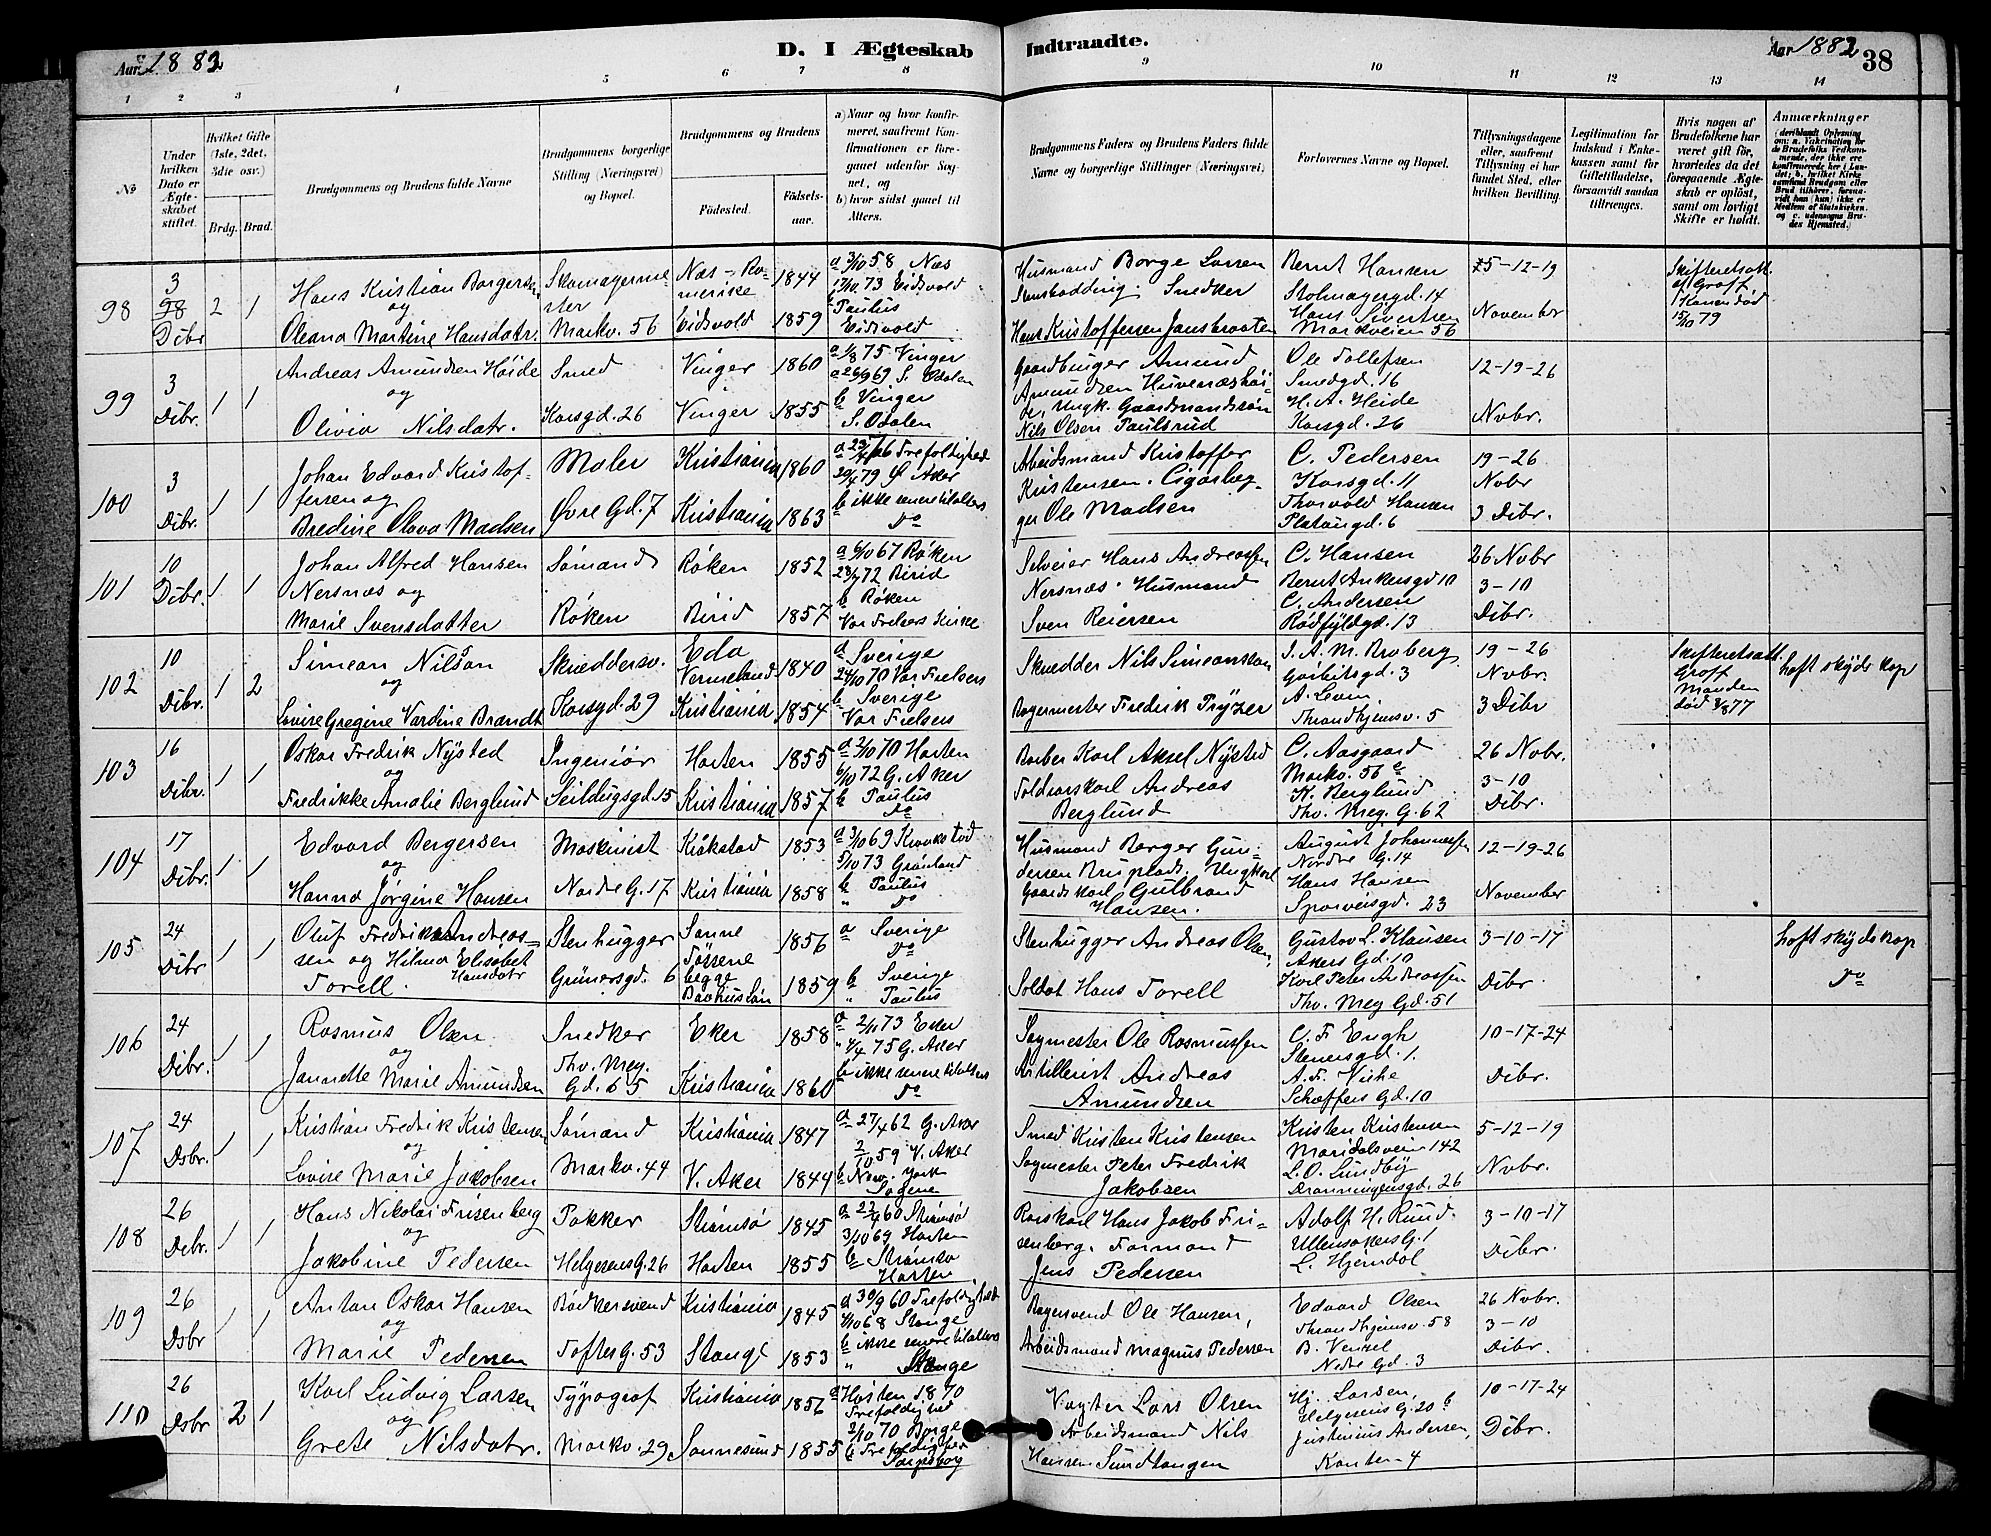 Aar 1882
D. I Ægteskab Indtraadte.
Aar 1882
38
1 2 3 4 5 6 7 8 9 10 11 12 13 14
No
Under hvilken Dato er Ægteskabet stiftet.
Hvilket Gifte (1ste, 2det, 3die osv.)
Brdg. Brud.
Brudgommens og Brudens fulde Navne
Brudgommens borgerlige Stilling (Næringsvei) og Bopæl.
Brudgommens og Brudens
Fødested.
Fødselsaar.
a) Naar og hvor konfirmeret, saafremt Konfirmationen er foregaaet udenfor Sognet, og
b) hvor sidst gaaet til Alters.
Brudgommens Faders og Brudens Faders fulde Navne og borgerlige Stillinger (Næringsvei)
Forlovernes Navne og Bopæl.
Tillysningsdagene eller, saafremt Tillysning ei har fundet Sted, efter hvilken Bevilling.
Legitimation for Indskud i Enkekassen samt for Giftetilladelse, forsaavidt saadan tiltrænges.
Hvis nogen af Brudefolkene har været gift før, hvorledes da det foregaaende Ægteskab er opløst, samt om lovligt Skifte er holdt.
Anmærkninger
98 3 Dibr 2 1
Hans Kristian Borgersen
og
Oleana Martine Hansdatr.
Skomagermester
Markv. 56
Næs - Romerike 1844
Eidsvold 1859
a 3/10 58 Næs
12/10 73 Eidsvold
b Paulus
Eidsvold
Husmand Borge Larsen
Snedker
Hans Kristoffersen Jansbraaten
Bernt Hansen
Stolmagergd. 14
Hans Sivertsen
Markveien 56
5-12-19
November
Skifteretsatt.
Graft
Konen død
15/10 79
99 3 Dibr. 1 1
Andreas Amundsen Høide
og
Olivia Nilsdatr.
Smed
Korsgd. 26
Vinger 1860
Vinger 1855
a 1/8 75 Vinger
a 26/9 69 S. Odalen
b Vinger
S. Odalen
Gaardbruger Amund
Amundsen
Ungk. Gaardmandssøn
Nils Olsen Paulsrud
Ole Tollefsen
Smedgd. 16
H. A. Heide
Korsgd. 26
12-19-26
Novbr.
100 3 Dibr. 1 1
Johan Edvard Kristoffersen og
Bredine Olava Madsen
Maler
Øvre Gd. 7
Kristiania 1860
Kristiania 1863
Trefoldighed
20/4 79 Ø Aker
b ikke senere tilalters
Do
Arbeidsmand Kristoffer
Kristensen. Cigarlægger Ole Madsen
C. Pedersen
Korsgd. 11
Thorvald Hansen
Platougd. 6
19-26
Nobr
3 Dibr.
101 10 Dibr. 1 1
Johan Alfred Hansen
Nersnæs og
Marie Svensdatter
Sømand
Røken
Røken 1852
Birid 1857
a 6/10 67 Røken
23/7 72 Birid
b Røken
Vor Frelsers Kirke
Selveier Hans Andreassen
Nersnæs. Husmand
Sven Reiersen
C. Hansen
Bernt Ankersgd 10
C. Andersen
Rødfyldgd. 13
26 Nobr
3-10
Dibr.
102 10 Dibr. 1 2
Simeon Nilson
og
Lovise Gregine Vardine Brandt
Skræddersv.
Korsgd. 29
Eda
Vermeland 1840
Kristiania 1854
a Sverige
24/10 70 Vor Frelsers
b Sverige
Vor Frelsers
Skrædder Nils Simeonsson
Bagermester Fredrik Fryzer
J. A. M. Broberg
Garbitsgd. 3
A. Leven
Throndhjemsv. 5
19-26
Nobr.
3 Dibr
Skifteretsatt.
Graft
Manden
død 3/8 77
haft skyds kop
103 16 Dibr. 1 1
Oskar Fredrik Nysted
og
Fredrikke Amalie Berglund
Ingeniør
Seildugsgd. 15
Horten 1855
Kristiania 1857
a 2/10 70 Horten
6/10 72 G. Aker
b Paulus
Do
Barber Karl Aksel Nysted
Toldvarskarl Andreas
Berglund
C. Aasgaard
Markv. 56 c
K. Berglund
Thv. Mey. G. 62
26 Nobr.
3-10
Dibr.
104 17 Dibr. 1 1
Edvard Bergersen
og
Hanna Jørgine Hansen
Maskinist
Nordre G. 17
Kråkstad 1853
Kristiania 1858
a 3/10 69 Kraakstad
5/10 73 Grønland
b Paulus
" Do
Husmand Borger Gundersen Bruplads. Ungkarl
Gaardskarl Gulbrand
Hansen.
August Johannessen
Nordre G. 14
Hans Hansen
Sporveisgd. 23
12-19-26
November
105 24 Dibr 1 1
Oluf Fredrik Andreassen og Hilma Elisabet
Hansdatr
Torell.
Stenhugger
Grünersgd. 6
Sanne 1856
Tossene
begge
Bohuslän 1859
a Sverige
Do
b Sverige
" Paulus
Stenhugger Andreas Olsen,
Soldat Hans Torell
Gustav L. Klausen
Akers Gd. 10
Karl Peter Andreassen
Thv. Mey Gd. 51
3-10-17
Dibr.
haft skyds kop
Do
106 24 Dibr. 1 1
Rasmus Olsen
og
Jannette Marie Amundsen
Snedker
Thv. Mey.
Gd. 65
Eker 1858
Kristiania 1860
a 2/11 73 Eker
" 4/4 75 G. Aker
b ikke senere tilalters
Do
Sagmester Ole Rasmussen
Artillerist Andreas
Amundsen
C. F. Engh
Stenersgd. 1.
A. F. Viehe
Schaffers Gd. 10
10-17-24
Dibr.
107 24 Dsbr. 1 1
Kristian Fredrik Kristensen
og
Lovise Marie Jakobsen
Sømand
Markv. 44
Kristiania 1847
V. Aker 1844
a 27/4 62 G. Aker
2/10 59 V. Aker
b New-york
Sagene
Smed Kristen Kristensen
Sagmester Peter Fredrik
Jakobsen
Kristen Kristensen
Maridalsvein 142
L. O. Lundby
Dronningensgd. 26
5-12-19
Nvbr.
108 26 Debr. 1 1
Hans Nikolai Frisenberg
og
Jakobine Pedersen
Pakker
Helgesens G. 26
Strømsø 1845
Horten 1855
a 22/4 60 Strømsø
3/10 69 Horten
b Strømsø
Horten
Hans Jakob Frisenberg. Formand
Jens Pedersen
Adolf H. Ruud.
Ullensakers G. 1
L. Hjemdal
3-10-17
Dibr.
109 26 Dsbr 1 1
Anton Oskar Hansen
og
Marie Pedersen
Bødkersvend
Toftes G. 53
Kristiania 1845
Stange 1853
a 30/9 60 Trefoldighed
4/10 68 Stange
b ikke senere tilalters
" Stange
Bagersvend Ole Hansen,
Arbeidsmand Magnus Pedersen
Edvard Olsen
Throndhjemsv. 58
B. Venzel
Nedre Gd. 3
26 Nvbr.
3-10
Dibr.
110 26 Dsbr 2 1
Karl Ludvig Larsen
og
Grete Nilsdatr.
Typograf
Markv. 29
Kristiania 1856
Sannesund 1855
a Høsten 1870
Trefoldighed
2/10 70 Borge
b Trefoldighed
Sarpsborg
Vagter Lars Olsen
Arbeidsmand Nils
Hansen Sundtangen
Hj. Larsen,
Helgesens G. 20 b
Justinius Andersen,
Kanten 4
10-17-24
Dibr.